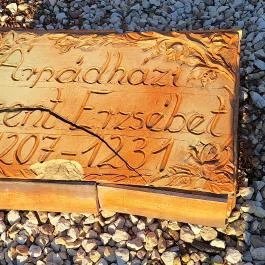 Árpádházi
zent Erzsébet
1207-1231